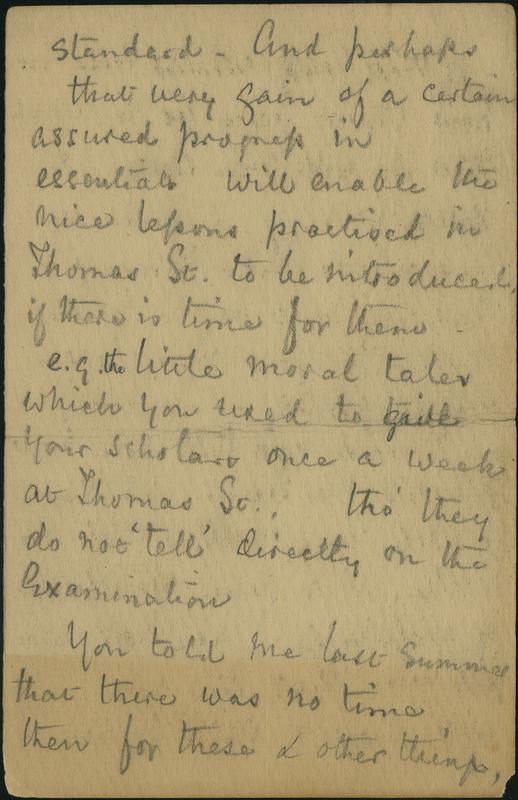 standard - And perhaps
that very gain of a certain
assured progress in
essentials will enable the
nice lessons practised in
Thomas St. to be introduced,
if there is time for them -
e.g. the little moral tales
which you used to give
your scholars once a week
at Thomas St., tho' they
do not 'tell' directly on the
Examination
You told me last Summer
that there was no time
then for these & other things,